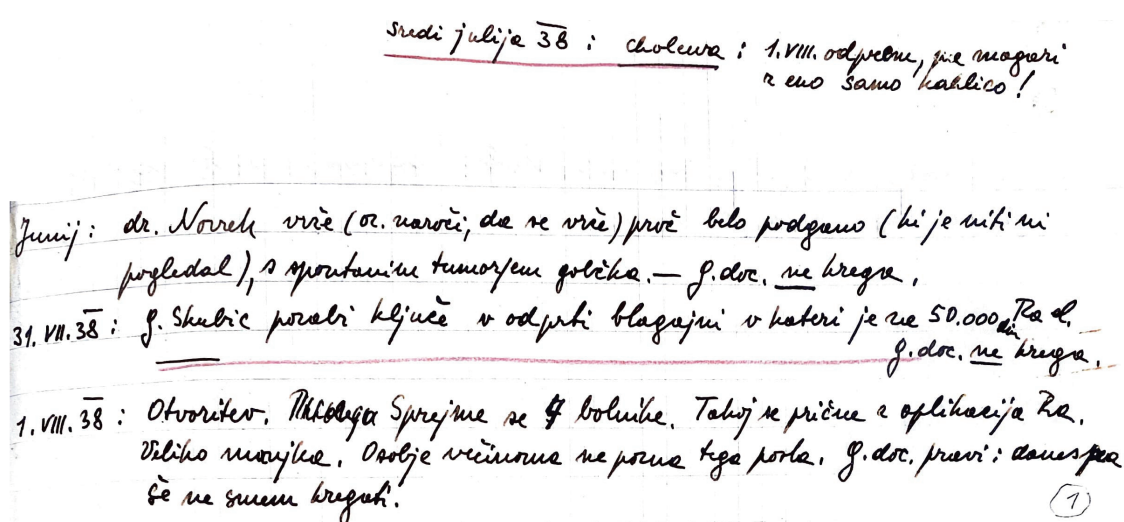 sredi julija 38 : cholewa : 1.VIII. odpremo, pa magari
z eno samo kahlico!
Junij: dr. Novak vrže (oz. naroči, da se vrže) proč belo podgano (ki je niti ni
pogledal), s spontanim tumorjem gobčka. — g. doc. ne krega.
31. VII. 38 : g. Skubic pozabi ključe v odprti blagajni v kateri je za 50.000 din Ra el.
g. doc. ne krega.
1. VIII. 38 : Otvoritev. Sprejme se bolnike. Takoj se prične z aplikacija Ra.
Veliko manjka. Osobje večinoma ne pozna tega posla. g. doc. pravi: danes pa
še ne smem kregati.
1